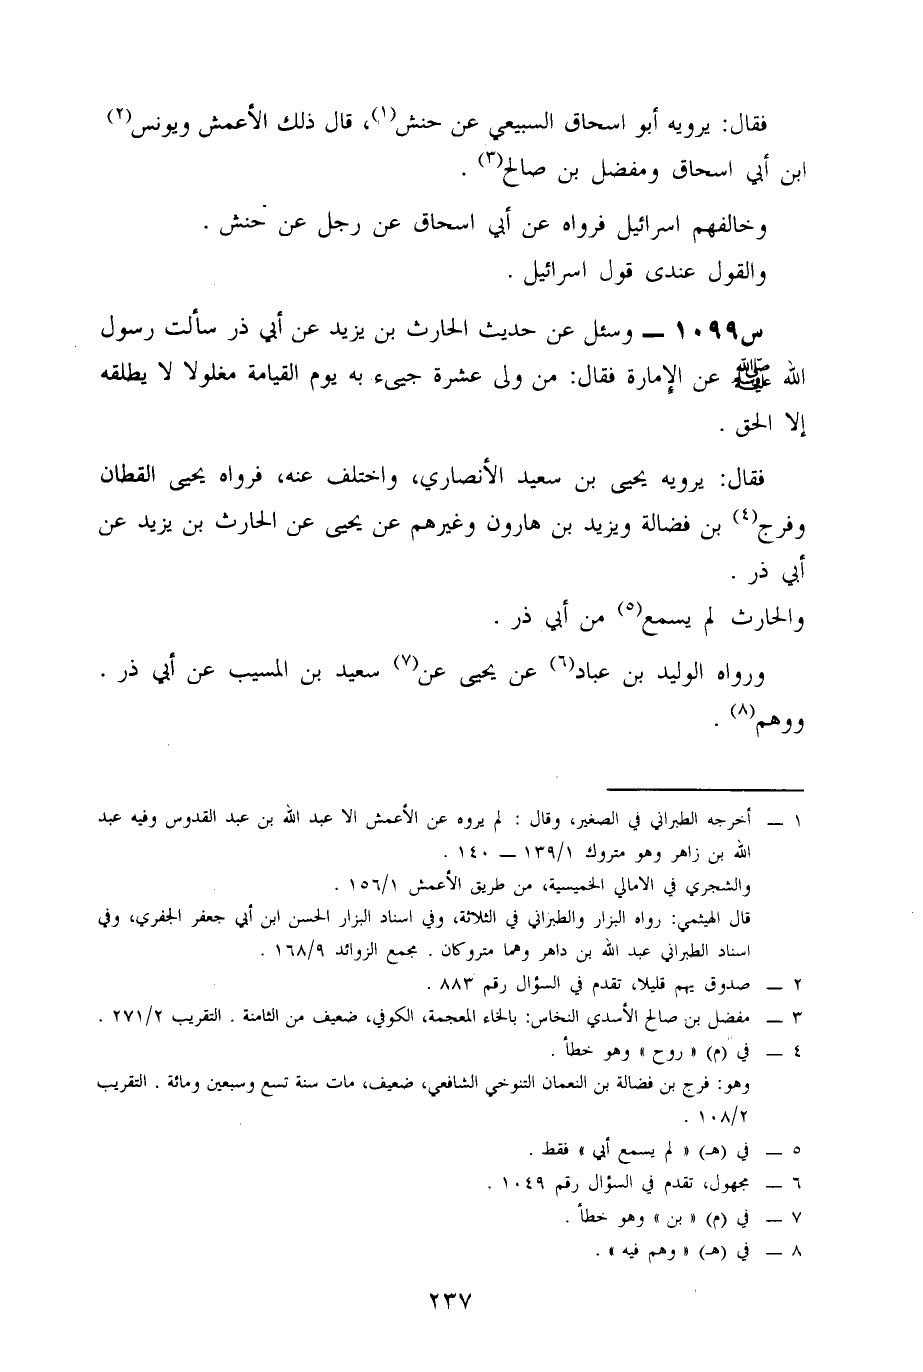 فقال: يرويه أبو اسحاق السبيعي عن حنش(١)، قال ذلك الأعمش ويونس(٢)
ابن أبي اسحاق ومفضل بن صالح(٣) .
وخالفهم اسرائيل فرواه عن أبي اسحاق عن رجل عن حنش .
والقول عندى قول اسرائيل .
س١٠٩٩ ــ وسئل عن حديث الحارث بن يزيد عن أبي ذر سألت رسول
الله ﷺ عن الإمارة فقال: من ولى عشرة جيىء به يوم القيامة مغلولا لا يطلقه
إلا الحق .
فقال: يرويه يحيى بن سعيد الأنصاري، واختلف عنه، فرواه يحيى القطان
وفرج(٤) بن فضالة ويزيد بن هارون وغيرهم عن يحيى عن الحارث بن يزيد عن
أبي ذر .
والحارث لم يسمع(٥) من أبي ذر .
ورواه الوليد بن عباد(٦) عن يحيى عن(٧) سعيد بن المسيب عن أبي ذر .
ووهم(٨) .
١ ــ أخرجه الطبراني في الصغير، وقال : لم يروه عن الأعمش الا عبد الله بن عبد القدوس وفيه عبد
الله بن زاهر وهو متروك ١٣٩/١ ــ ١٤٠ .
والشجري في الامالي الخميسية، من طريق الأعمش ١٥٦/١ .
قال الهيثمي: رواه البزار والطبراني في الثلاثة، وفي اسناد البزار الحسن ابن أبي جعفر الجفري، وفي
اسناد الطبراني عبد الله بن داهر وهما متروكان . مجمع الزوائد ١٦٨/٩ .
٢ ــ صدوق يهم قليلا، تقدم في السؤال رقم ٨٨٣ .
٣ ــ مفضل بن صالح الأسدي النخاس: بالخاء المعجمة، الكوفي، ضعيف من الثامنة . التقريب ٢٧١/٢ .
٤ ــ في (م) « روح » وهو خطأ .
وهو: فرج بن فضالة بن النعمان التنوخي الشافعي، ضعيف، مات سنة تسع وسبعين ومائة . التقريب
١٠٨/٢ .
٥ ــ في (هـ) « لم يسمع أبي » فقط .
٦ ــ مجهول، تقدم في السؤال رقم ١٠٤٩ .
٧ ــ في (م) « بن » وهو خطأ .
٨ ــ في (هـ) « وهم فيه » .
٢٣٧